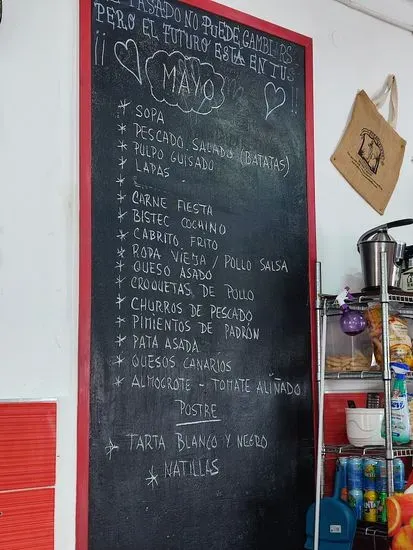 EL PASADO NO PUEDE CAMBIARSE
PERO EL FUTURO ESTA EN TUS
¡¡ MAYO !!
* SOPA
* PESCADO SALADO (BATATAS)
* PULPO GUISADO
* LAPAS
*
* CARNE FIESTA
* BISTEC COCHINO
* CABRITO FRITO
* ROPA VIEJA / POLLO SALSA
* QUESO ASADO
* CROQUETAS DE POLLO
* CHURROS DE PESCADO
* PIMIENTOS DE PADRÓN
* PATA ASADA
* QUESOS CANARIOS
* ALMOGROTE - TOMATE ALIÑADO
POSTRE
* TARTA BLANCO Y NEGRO
* NATILLAS